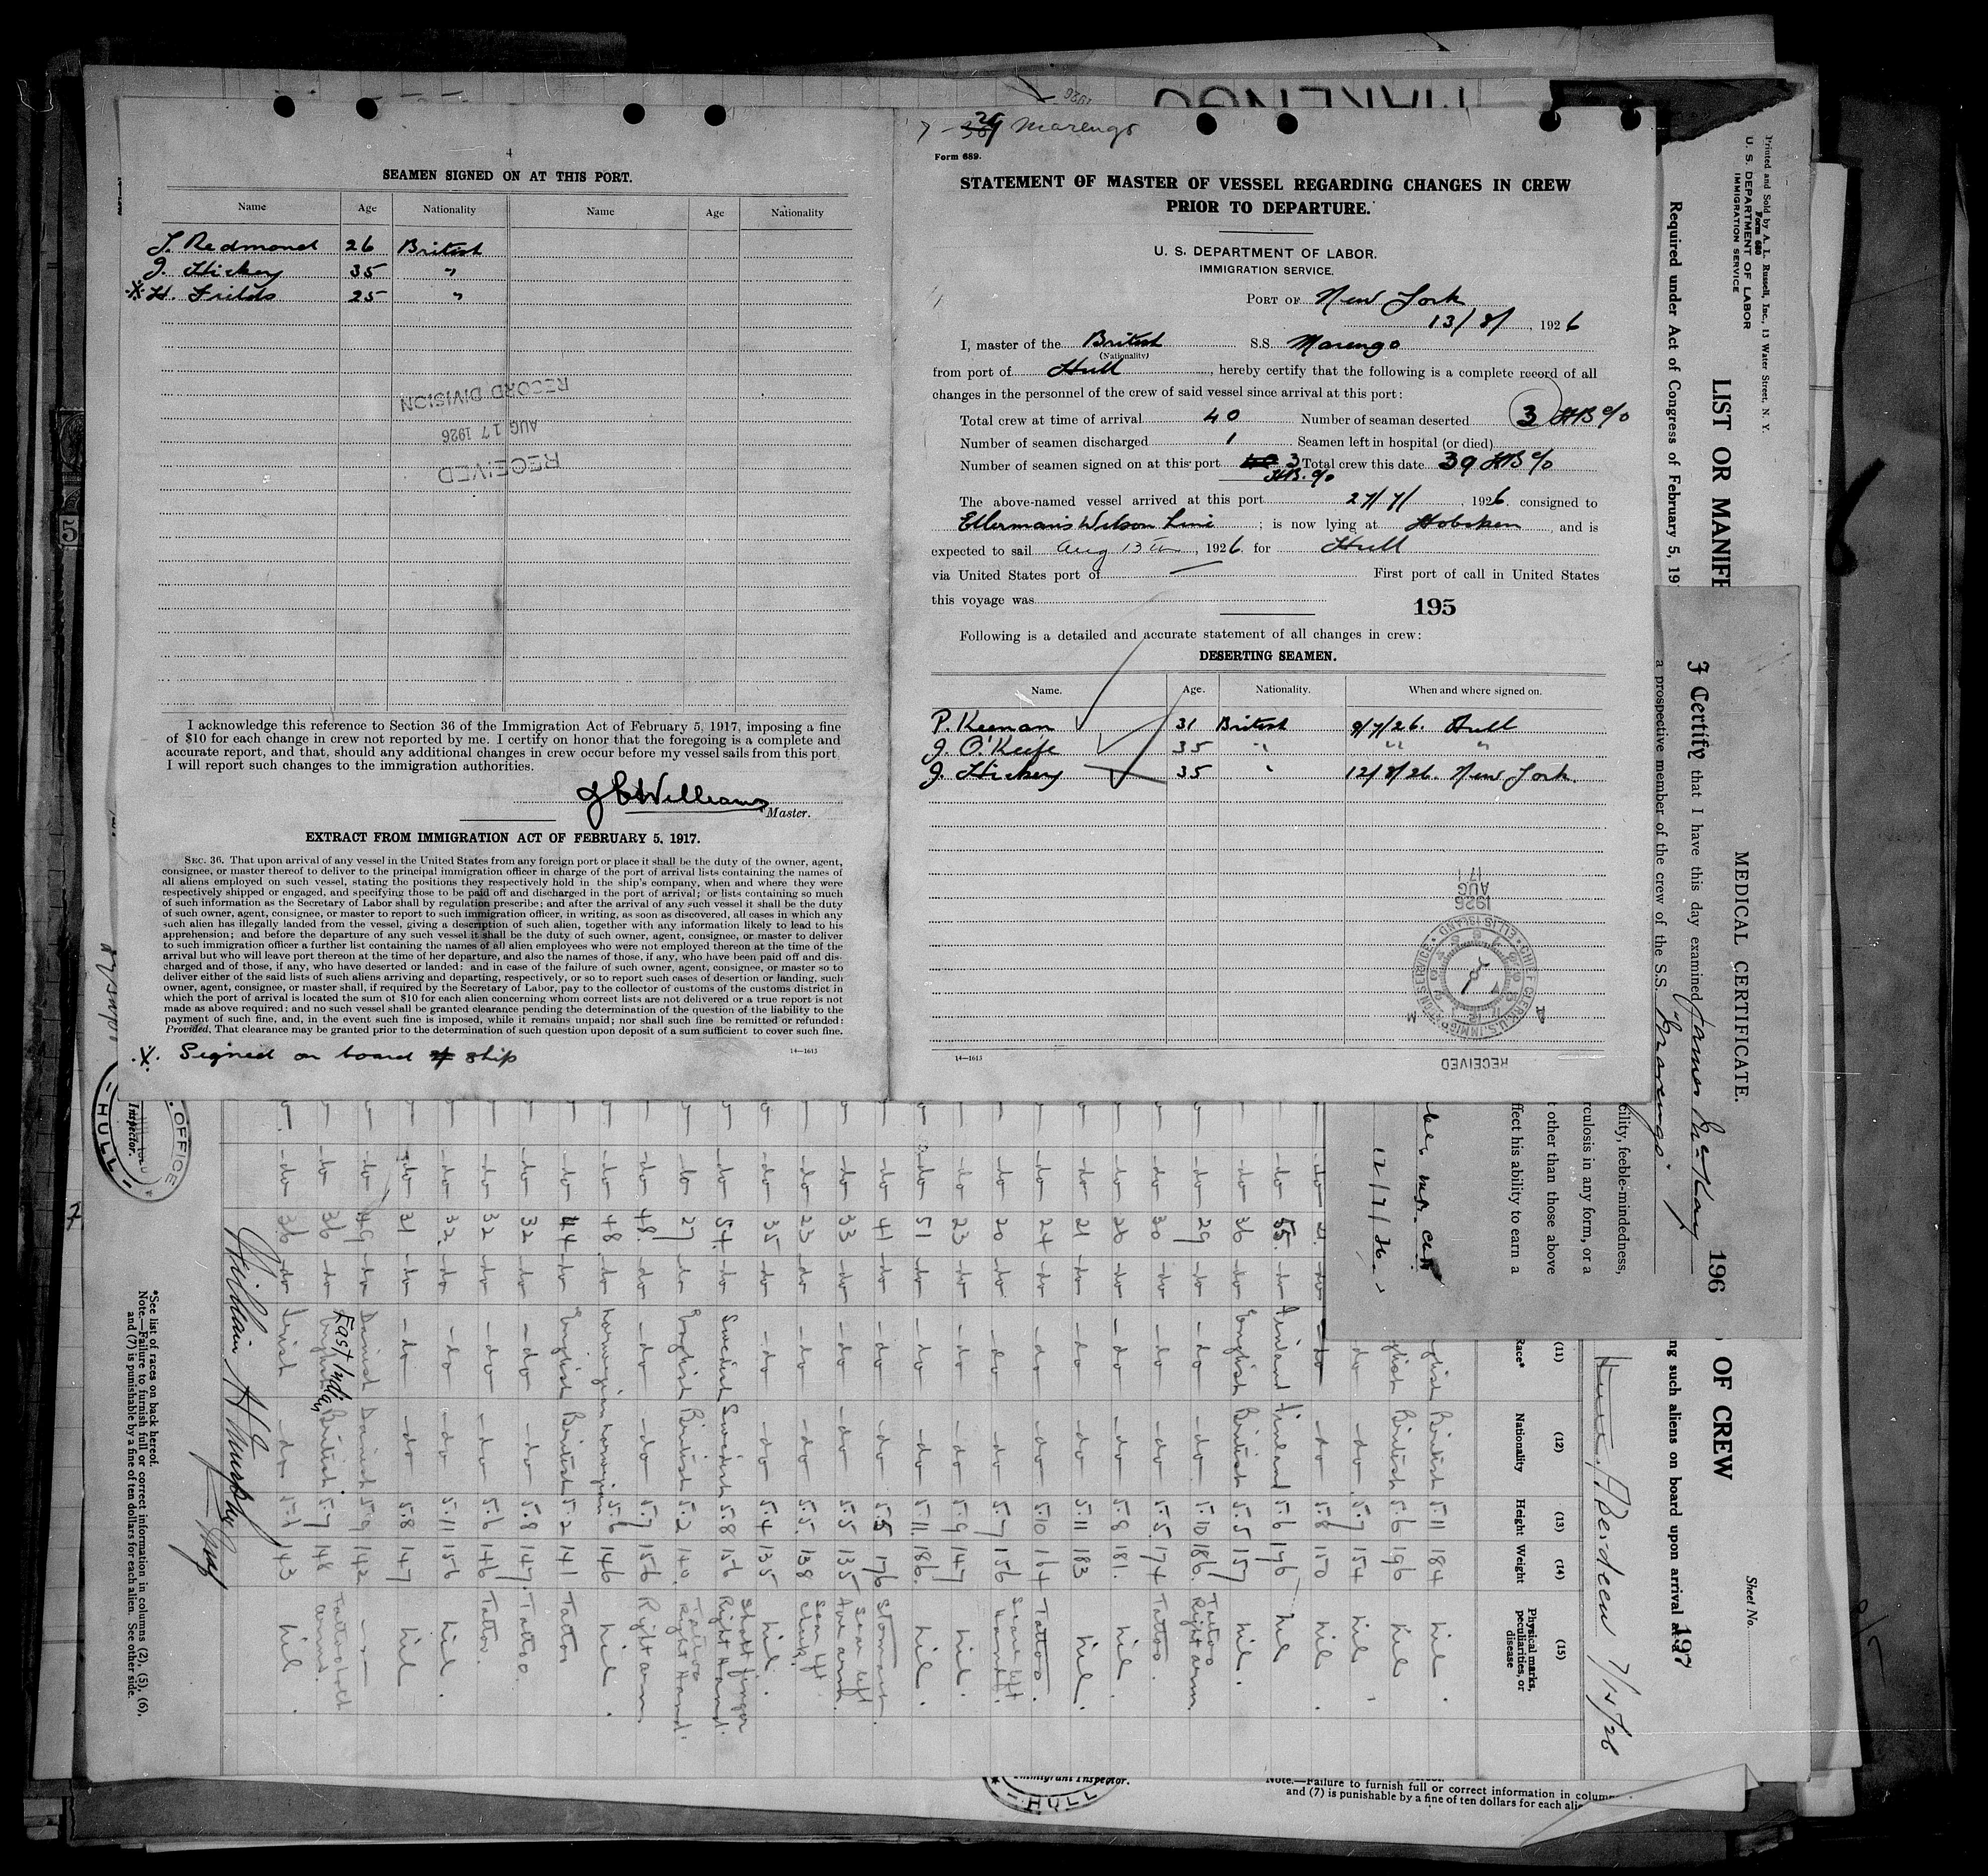 MARENGO
1926
4
SEAMEN SIGNED ON AT THIS PORT.
Name Age Nationality Name Age Nationality
J. Redmond 26 British
J. Hickey 35 "
X H. Fields 25 "
RECORD DIVISION
AUG 17 1926
RECEIVED
I acknowledge this reference to Section 36 of the Immigration Act of February 5, 1917, imposing a fine
of $10 for each change in crew not reported by me. I certify on honor that the foregoing is a complete and
accurate report, and that, should any additional changes in crew occur before my vessel sails from this port
I will report such changes to the immigration authorities.
Williams
Master.
EXTRACT FROM IMMIGRATION ACT OF FEBRUARY 5, 1917.
SEC. 36. That upon arrival of any vessel in the United States from any foreign port or place it shall be the duty of the owner, agent,
consignee, or master thereof to deliver to the principal immigration officer in charge of the port of arrival lists containing the names of
all aliens employed on such vessel, stating the positions they respectively hold in the ship's company, when and where they were
respectively shipped or engaged, and specifying those to be paid off and discharged in the port of arrival; or lists containing so much
of such information as the Secretary of Labor shall by regulation prescribe; and after the arrival of any such vessel it shall be the duty
of such owner, agent, consignee, or master to report to such immigration officer, in writing, as soon as discovered, all cases in which any
such alien has illegally landed from the vessel, giving a description of such alien, together with any information likely to lead to his
apprehension; and before the departure of any such vessel it shall be the duty of such owner, agent, consignee, or master to deliver
to such immigration officer a further list containing the names of all alien employees who were not employed thereon at the time of the
arrival but who will leave port thereon at the time of her departure, and also the names of those, if any, who have been paid off and dis-
charged and of those, if any, who have deserted or landed; and in case of the failure of such owner, agent, consignee, or master so to
deliver either of the said lists of such aliens arriving and departing, respectively, or so to report such cases of desertion or landing, such
owner, agent, consignee, or master shall, if required by the Secretary of Labor, pay to the collector of customs of the customs district in
which the port of arrival is located the sum of $10 for each alien concerning whom correct lists are not delivered or a true report is not
made as above required; and no such vessel shall be granted clearance pending the determination of the question of the liability to the
payment of such fine, and, in the event such fine is imposed, while it remains unpaid; nor shall such fine be remitted or refunded:
Provided, That clearance may be granted prior to the determination of such question upon deposit of a sum sufficient to cover such fine.
X. Signed on board ship
14—1613
Marengo
Form 689.
STATEMENT OF MASTER OF VESSEL REGARDING CHANGES IN CREW
PRIOR TO DEPARTURE.
U. S. DEPARTMENT OF LABOR.
IMMIGRATION SERVICE.
PORT OF New York
13/8/, 1926
I, master of the British S.S. Marengo
(Nationality)
from port of Hull, hereby certify that the following is a complete record of all
changes in the personnel of the crew of said vessel since arrival at this port:
Total crew at time of arrival 40 Number of seaman deserted 3 HB %
Number of seamen discharged 1 Seamen left in hospital (or died)
Number of seamen signed on at this port 3 Total crew this date 39 HB %
HB. %
The above-named vessel arrived at this port 27/7/, 1926. consigned to
Ellerman's Wilson Line; is now lying at Hoboken, and is
expected to sail Aug 13th, 1926. for Hull
via United States port of — First port of call in United States
this voyage was
195
Following is a detailed and accurate statement of all changes in crew:
DESERTING SEAMEN.
Name. Age. Nationality. When and where signed on.
P. Keenan 31 British 9/7/26. Hull
J. O'Keefe 35 " " "
J. Hickey 35 " 12/8/26. New York.
1926
AUG
17
CHIEF CLERK U.S. IMMIGRATION SERVICE • ELLIS ISLAND
RECEIVED
14—1613
Printed and Sold by A. L. Russell, Inc., 13 Water Street, N. Y.
Form 680
U. S. DEPARTMENT OF LABOR
IMMIGRATION SERVICE
LIST OR MANIFE
Required under Act of Congress of February 5, 19
MEDICAL CERTIFICATE. 196
I Certify that I have this day examined James McKay
a prospective member of the crew of the S.S. "Marengo"
cility, feeble-mindedness,
rculosis in any form, or a
t other than those above
ffect his ability to earn a
12/7/26.
Sheet No.
OF CREW
ng such aliens on board upon arrival at
197
Aberdeen 7/14/26
(11) (12) (13) (14) (15)
Race* Nationality Height Weight Physical marks, peculiarities, or disease
British 5.11 184 Nil.
British 5.6 196 Nil
do 5.7 154 Nil
do 5.8 150 Nil.
55 do Finland Finland 5.6 176 Nil
do 36 do English British 5.5 157 Nil.
do 29 do do 5.10 186. Tattoo Right arm
do 30 do do do 5.5 174 Tattoo.
do 26 do do do 5.8 181. Nil.
do 21 do do do 5.11 183 Nil.
do 24 do do do 5.10 164 Tattoo.
do 20 do do do 5.7 156 Scar left hand
do 23 do do do 5.9 147 Nil.
do 51 do do do 5.11. 186. Nil.
do 41 do do do 5.5 176 Stomach.
do 33 do do do 5.5 135 Scar left forearm.
do 23 do do do 5.5. 138 Scar left cheek.
do 35 do do do 5.4 135 Nil.
do 54. do Swedish Swedish 5.8 156 Short finger Right Hand.
do 27 do English British 5.2 140. Tattoo Right Hand.
do 48. do do do 5.7 156 Right arm
do 48. do Norwegian Norwegian 5.6 146 Nil.
do 44 do English British 5.2 141 Tattoo
do 32 do do do 5.8 147. Tattoo.
do 32 do do do 5.6 146 Tattoo.
do 32. do do do 5.11 156 Nil.
do 31 do do do 5.8 147 Nil
do 49 do Danish Danish 5.9 142
do 36 do East Indian British 5.7 148 Tattoo both arms.
do 36. do Irish do 5.7 143 Nil.
William H Murphy
*See list of races on back hereof.
Note.—Failure to furnish full or correct information in columns (2), (5), (6),
and (7) is punishable by a fine of ten dollars for each alien. See other side.
OFFICE
Inspector.
HULL
7
5
Immigrant Inspector.
HULL
Note.—Failure to furnish full or correct information in colum
and (7) is punishable by a fine of ten dollars for each alie